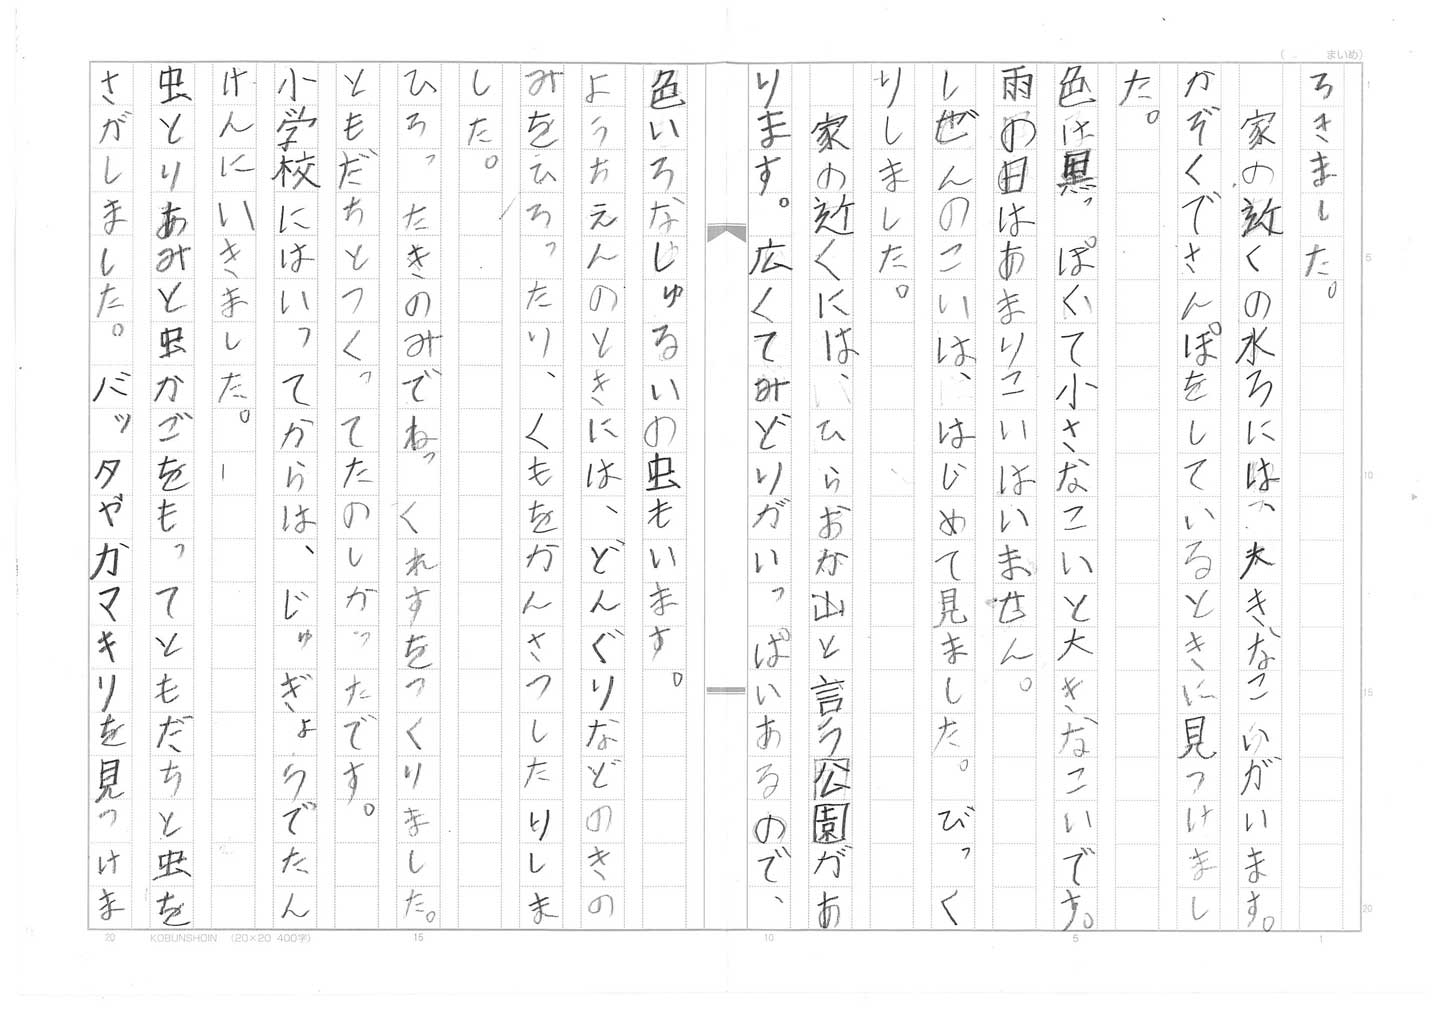 ろきました。
家の近くの水ろには、大きなこいがいます。
かぞくでさんぽをしているときに見つけまし
た。
色は黒っぽくて小さなこいと大きなこいです。
雨の日はあまりこいはいません。
しぜんのこいは、はじめて見ました。びっく
りしました。
家の近くには、ひらおか山と言う公園があ
ります。広くてみどりがいっぱいあるので、
色いろなしゅるいの虫もいます。
ようちえんのときには、どんぐりなどのきの
みをひろったり、くもをかんさつしたりしま
した。
ひろったきのみでねっくれすをつくりました。
ともだちとつくってたのしかったです。
小学校にはいってからは、じゅぎょうでたん
けんにいきました。
虫とりあみと虫かごをもってともだちと虫を
さがしました。バッタやカマキリを見つけま
(まいめ)
1
5
10
15
20
20 KOBUNSHOIN (20×20 400字) 15 10 5 1